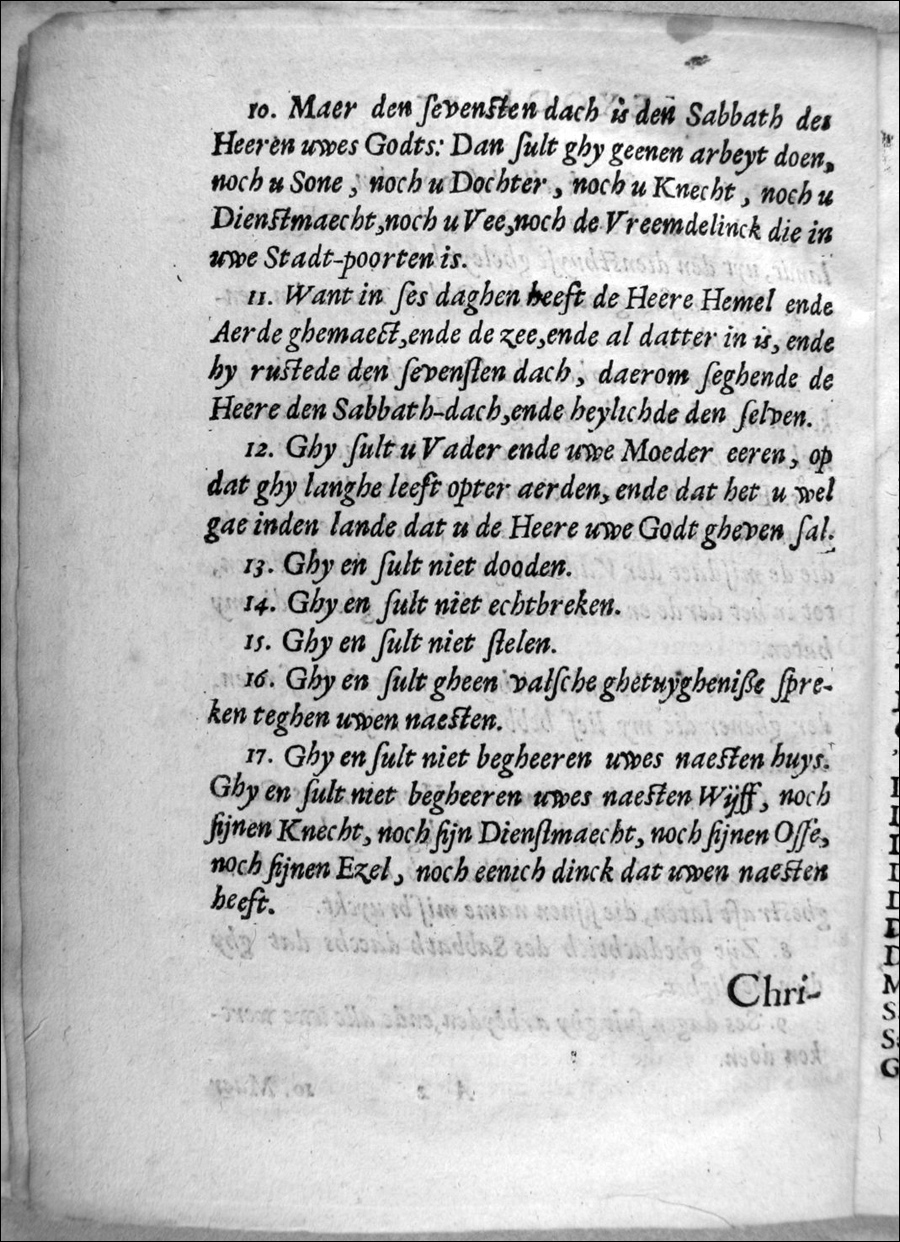 10. Maer den ſevenſten dach is den Sabbath des
Heeren uwes Godts: Dan ſult ghy geenen arbeyt doen,
noch u Sone, noch u Dochter, noch u Knecht, noch u
Dienſtmaecht, noch u Vee, noch de Vreemdelinck die in
uwe Stadt-poorten is.
11. Want in ſes daghen heeft de Heere Hemel ende
Aerde ghemaect, ende de zee, ende al datter in is, ende
hy ruſtede den ſevenſten dach, daerom ſeghende de
Heere den Sabbath-dach, ende heylichde den ſelven.
12. Ghy ſult u Vader ende uwe Moeder eeren, op
dat ghy langhe leeft opter aerden, ende dat het u wel
gae inden lande dat u de Heere uwe Godt gheven ſal.
13. Ghy en ſult niet dooden.
14. Ghy en ſult niet echtbreken.
15. Ghy en ſult niet ſtelen.
16. Ghy en ſult gheen valſche ghetuygheniße ſpre-
ken teghen uwen naeſten.
17. Ghy en ſult niet begheeren uwes naeſten huys.
Ghy en ſult niet begheeren uwes naeſten Wijff, noch
ſijnen Knecht, noch ſijn Dienſtmaecht, noch ſijnen Oſſe,
noch ſijnen Ezel, noch eenich dinck dat uwen naeſten
heeft.
Chri-